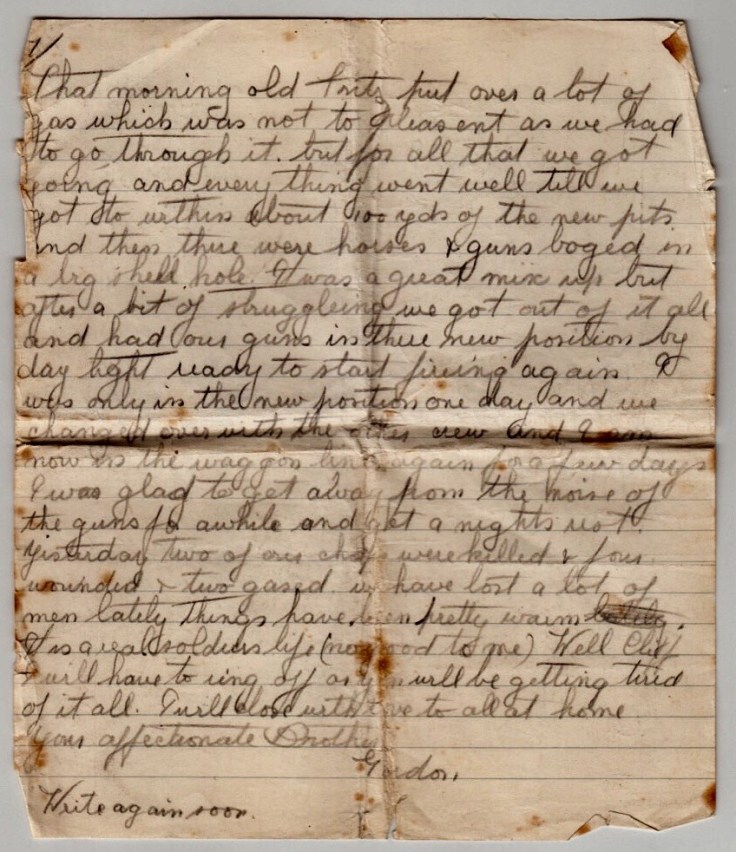 That morning old Fritz put over a lot of
gas which was not to pleasent as we had
to go through it. but for all that we got
going and every thing went well till we
got to within about 100 yds of the new pits
and then there were horses & guns boged in
a big shell hole. It was a great mix up but
after a bit of struggleing we got out of it all
and had our guns in there new position by
day light ready to start fireing again. I
was only in the new position one day and we
changed over with the other crew and I am
now in the waggon line again for a few days
I was glad to get away from the noise of
the guns for awhile and get a nights rest.
Yesterday two of our chaps were killed & four
wounded & two gased. we have lost a lot of
men lately things have been pretty warm lately.
It is a real soldiers life (no good to me) Well Cliff
I will have to ring off as you will be getting tired
of it all. I will close with love to all at home
Your affectionate Brother
Gordon,
Write again soon.